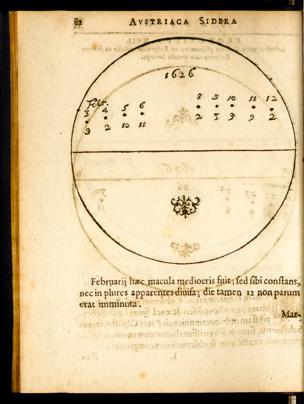 82 AVSTRIACA SIDERA
1626
Febr.
3 4 5 6 8 9 10 11 12
9 2 10 11 2 3 9 9 2
Februarij hæc macula mediocris fuit; sed sibi constans,
nec in plures apparentes divisa; die tamen 12 non parum
erat imminuta.
Mar-